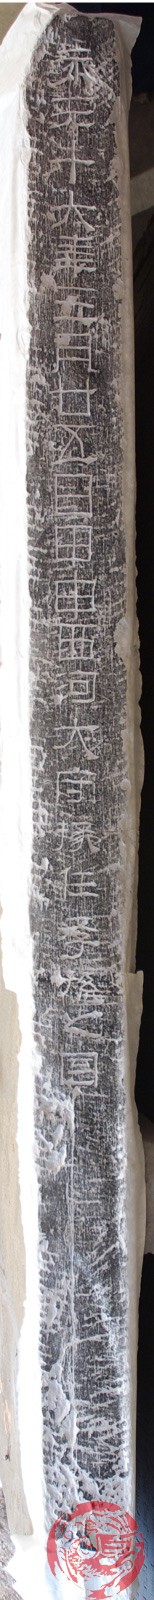 永元十六年三月廿五日甲申西河大守掾任孝孫之室